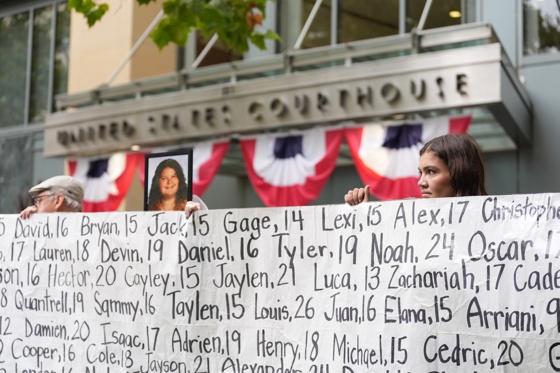 UNITED STATES COURTHOUSE
David,16 Bryan,15 Jack,15 Gage,14 Lexi,15 Alex,17 Christophe
17 Lauren,18 Devin,19 Daniel,16 Tyler,19 Noah,24 Oscar,
16 Hector,20 Cayley,15 Jaylen,21 Luca,13 Zachariah,17 Cade
Quantrell,19 Sammy,16 Taylen,15 Louis,26 Juan,16 Elana,15 Arriani,9
12 Damien,20 Isaac,17 Adrien,19 Henry,18 Michael,15 Cedric,20
Cooper,16 Cole,13 Jayson,21 Alexander,